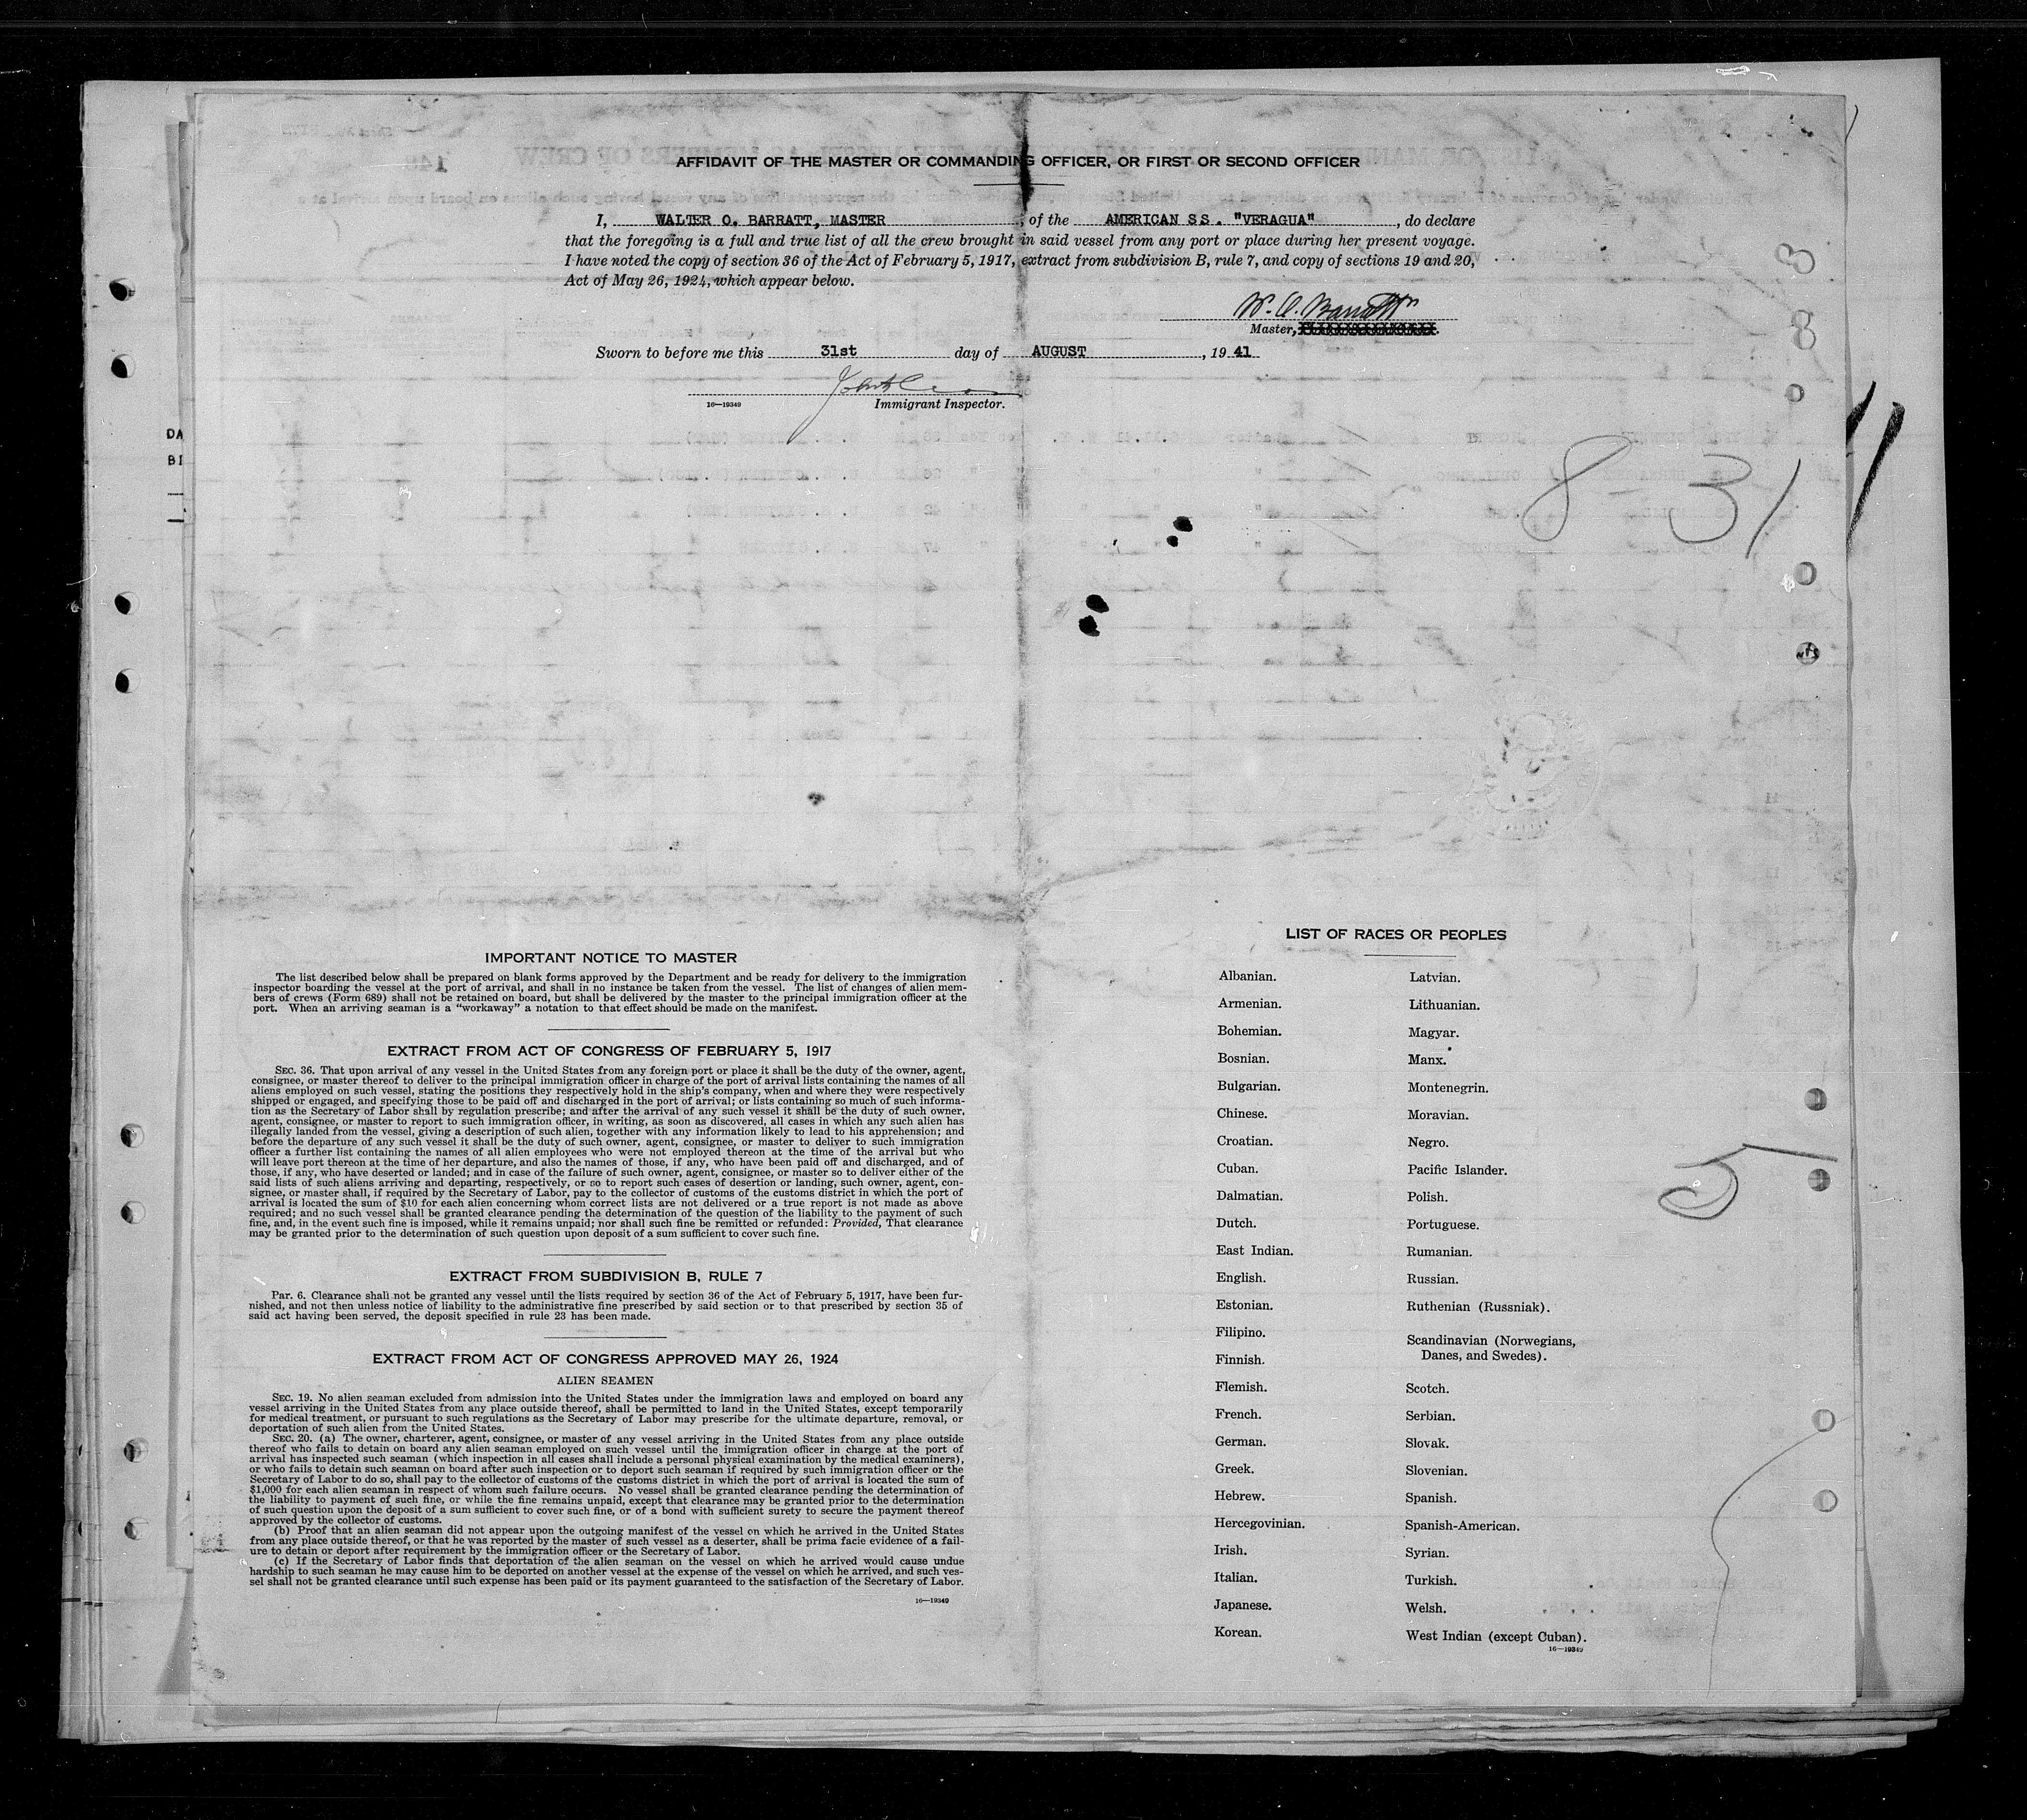 AFFIDAVIT OF THE MASTER OR COMMANDING OFFICER, OR FIRST OR SECOND OFFICER
I, WALTER O. BARRATT, MASTER, of the AMERICAN SS. "VERAGUA", do declare
that the foregoing is a full and true list of all the crew brought in said vessel from any port or place during her present voyage.
I have noted the copy of section 36 of the Act of February 5, 1917, extract from subdivision B, rule 7, and copy of sections 19 and 20,
Act of May 26, 1924, which appear below.
W. O. Barratt
Master,
Sworn to before me this 31st day of AUGUST, 19 41
16—19349 Immigrant Inspector.
DA
BI
8-31
IMPORTANT NOTICE TO MASTER
The list described below shall be prepared on blank forms approved by the Department and be ready for delivery to the immigration
inspector boarding the vessel at the port of arrival, and shall in no instance be taken from the vessel. The list of changes of alien mem-
bers of crews (Form 689) shall not be retained on board, but shall be delivered by the master to the principal immigration officer at the
port. When an arriving seaman is a "workaway" a notation to that effect should be made on the manifest.
EXTRACT FROM ACT OF CONGRESS OF FEBRUARY 5, 1917
SEC. 36. That upon arrival of any vessel in the United States from any foreign port or place it shall be the duty of the owner, agent,
consignee, or master thereof to deliver to the principal immigration officer in charge of the port of arrival lists containing the names of all
aliens employed on such vessel, stating the positions they respectively hold in the ship's company, when and where they were respectively
shipped or engaged, and specifying those to be paid off and discharged in the port of arrival; or lists containing so much of such informa-
tion as the Secretary of Labor shall by regulation prescribe; and after the arrival of any such vessel it shall be the duty of such owner,
agent, consignee, or master to report to such immigration officer, in writing, as soon as discovered, all cases in which any such alien has
illegally landed from the vessel, giving a description of such alien, together with any information likely to lead to his apprehension; and
before the departure of any such vessel it shall be the duty of such owner, agent, consignee, or master to deliver to such immigration
officer a further list containing the names of all alien employees who were not employed thereon at the time of the arrival but who
will leave port thereon at the time of her departure, and also the names of those, if any, who have been paid off and discharged, and of
those, if any, who have deserted or landed; and in case of the failure of such owner, agent, consignee, or master so to deliver either of the
said lists of such aliens arriving and departing, respectively, or so to report such cases of desertion or landing, such owner, agent, con-
signee, or master shall, if required by the Secretary of Labor, pay to the collector of customs of the customs district in which the port of
arrival is located the sum of $10 for each alien concerning whom correct lists are not delivered or a true report is not made as above
required; and no such vessel shall be granted clearance pending the determination of the question of the liability to the payment of such
fine, and, in the event such fine is imposed, while it remains unpaid; nor shall such fine be remitted or refunded: Provided, That clearance
may be granted prior to the determination of such question upon deposit of a sum sufficient to cover such fine.
EXTRACT FROM SUBDIVISION B, RULE 7
Par. 6. Clearance shall not be granted any vessel until the lists required by section 36 of the Act of February 5, 1917, have been fur-
nished, and not then unless notice of liability to the administrative fine prescribed by said section or to that prescribed by section 35 of
said act having been served, the deposit specified in rule 23 has been made.
EXTRACT FROM ACT OF CONGRESS APPROVED MAY 26, 1924
ALIEN SEAMEN
SEC. 19. No alien seaman excluded from admission into the United States under the immigration laws and employed on board any
vessel arriving in the United States from any place outside thereof, shall be permitted to land in the United States, except temporarily
for medical treatment, or pursuant to such regulations as the Secretary of Labor may prescribe for the ultimate departure, removal, or
deportation of such alien from the United States.
SEC. 20. (a) The owner, charterer, agent, consignee, or master of any vessel arriving in the United States from any place outside
thereof who fails to detain on board any alien seaman employed on such vessel until the immigration officer in charge at the port of
arrival has inspected such seaman (which inspection in all cases shall include a personal physical examination by the medical examiners),
or who fails to detain such seaman on board after such inspection or to deport such seaman if required by such immigration officer or the
Secretary of Labor to do so, shall pay to the collector of customs of the customs district in which the port of arrival is located the sum of
$1,000 for each alien seaman in respect of whom such failure occurs. No vessel shall be granted clearance pending the determination of
the liability to payment of such fine, or while the fine remains unpaid, except that clearance may be granted prior to the determination
of such question upon the deposit of a sum sufficient to cover such fine, or of a bond with sufficient surety to secure the payment thereof
approved by the collector of customs.
(b) Proof that an alien seaman did not appear upon the outgoing manifest of the vessel on which he arrived in the United States
from any place outside thereof, or that he was reported by the master of such vessel as a deserter, shall be prima facie evidence of a fail-
ure to detain or deport after requirement by the immigration officer or the Secretary of Labor.
(c) If the Secretary of Labor finds that deportation of the alien seaman on the vessel on which he arrived would cause undue
hardship to such seaman he may cause him to be deported on another vessel at the expense of the vessel on which he arrived, and such ves-
sel shall not be granted clearance until such expense has been paid or its payment guaranteed to the satisfaction of the Secretary of Labor.
16—19349
LIST OF RACES OR PEOPLES
Albanian.
Armenian.
Bohemian.
Bosnian.
Bulgarian.
Chinese.
Croatian.
Cuban.
Dalmatian.
Dutch.
East Indian.
English.
Estonian.
Filipino.
Finnish.
Flemish.
French.
German.
Greek.
Hebrew.
Hercegovinian.
Irish.
Italian.
Japanese.
Korean.
Latvian.
Lithuanian.
Magyar.
Manx.
Montenegrin.
Moravian.
Negro.
Pacific Islander.
Polish.
Portuguese.
Rumanian.
Russian.
Ruthenian (Russniak).
Scandinavian (Norwegians,
Danes, and Swedes).
Scotch.
Serbian.
Slovak.
Slovenian.
Spanish.
Spanish-American.
Syrian.
Turkish.
Welsh.
West Indian (except Cuban).
16—19349
5